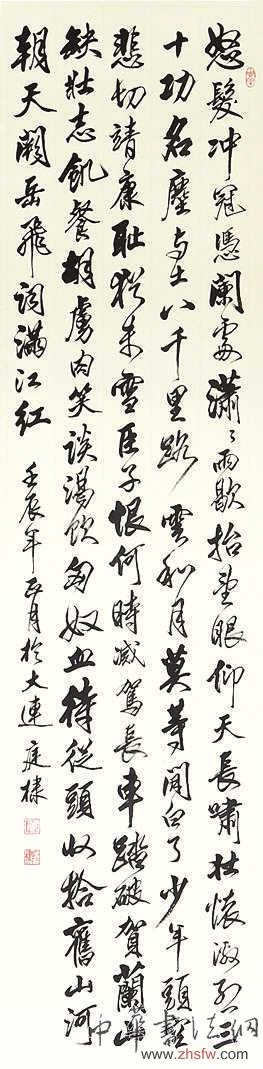 怒髮冲冠憑闌處瀟々雨歇抬望眼仰天長嘯壯懷激烈三
十功名塵与土八千里路雲和月莫等閒白了少年頭空
悲切靖康恥猶未雪臣子恨何時滅駕長車踏破賀蘭山
缺壯志飢餐胡虜肉笑談渴飲匈奴血待從頭收拾舊山河
朝天闕岳飛詞滿江紅
壬辰年正月於大連庭棣
中華書法網
www.zhsfw.com